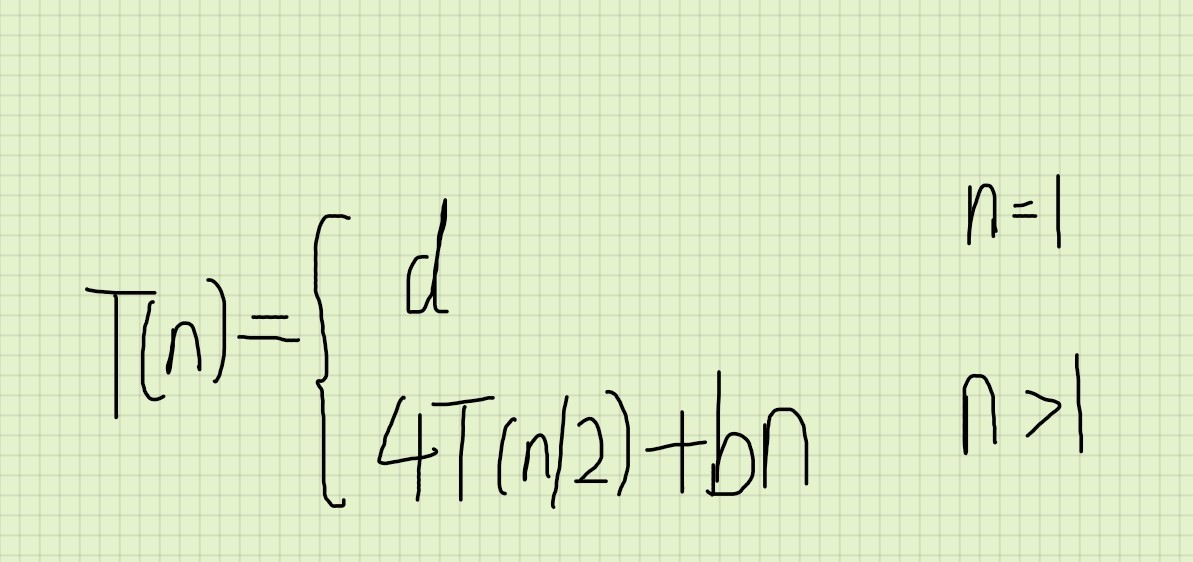 T(n) = { d n=1
4T(n/2)+bn n>1